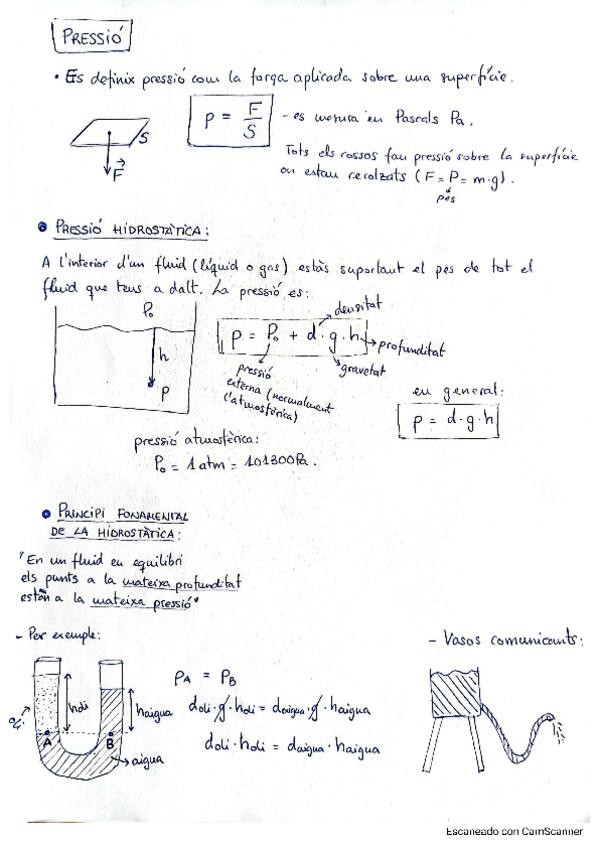 PRESSIÓ
• Es definix pressió com la força aplicada sobre una superfície.
S
F
p = F/S
- es mesura en Pascals Pa.
Tots els cossos fan pressió sobre la superfície
on estan recolzats (F = P = m·g).
pes
• PRESSIÓ HIDROSTÀTICA:
A l'interior d'un fluid (líquid o gas) estàs suportant el pes de tot el
fluid que tens a dalt. La pressió és:
P₀
h
P
densitat
p = P₀ + d·g·h
profunditat
gravetat
pressió
externa (normalment
l'atmosfèrica)
en general:
p = d·g·h
pressió atmosfèrica:
P₀ = 1 atm = 101300 Pa.
• PRINCIPI FONAMENTAL
DE LA HIDROSTÀTICA:
"En un fluid en equilibri
els punts a la mateixa profunditat
están a la mateixa pressió"
- Per exemple:
oli
holi
haigua
A
B
aigua
PA = PB
doli·g·holi = daigua·g·haigua
doli·holi = daigua·haigua
- Vasos comunicants:
Escaneado con CamScanner